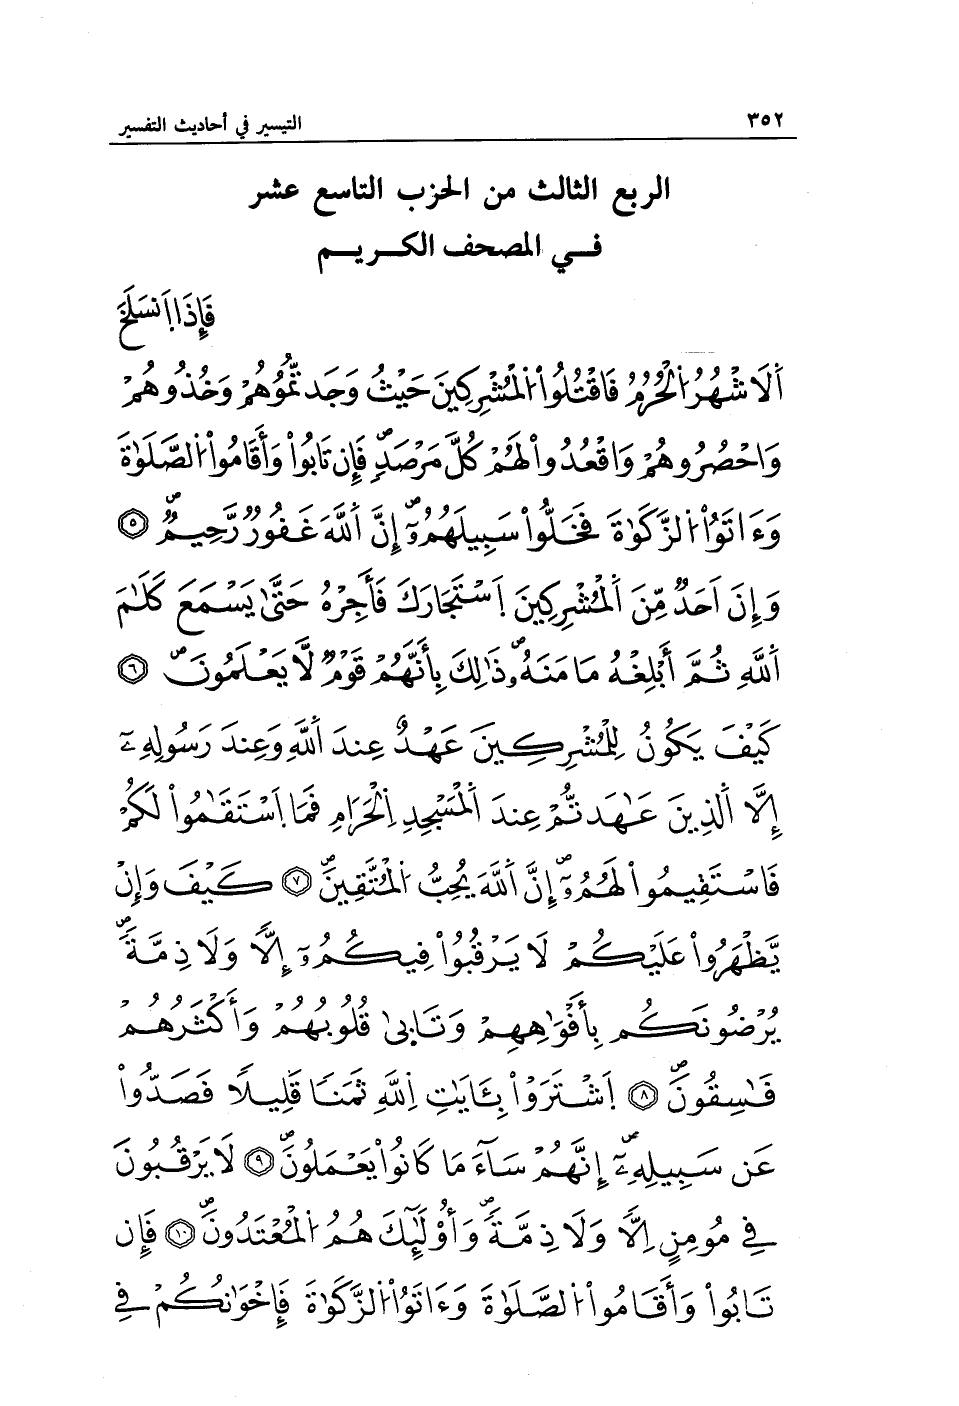 ٣٥٢ التيسير في أحاديث التفسير
الربع الثالث من الحزب التاسع عشر
في المصحف الكريم
فَإِذَا اَنسَلَخَ
اَلَاشْهُرُ اُلْحُرُمُ فَاقْتُلُواْ اُلْمُشْرِكِينَ حَيْثُ وَجَدتُّمُوهُمْ وَخُذُوهُمْ
وَاحْصُرُوهُمْ وَاقْعُدُواْ لَهُمْ كُلَّ مَرْصَدٍۖ فَإِن تَابُواْ وَأَقَامُواْ اُلصَّلَوٰةَ
وَءَاتَوُاْ اُلزَّكَوٰةَ فَخَلُّواْ سَبِيلَهُمُۥٓۖ إِنَّ اَللَّهَ غَفُورٌ رَّحِيمٌۖ ٥
وَإِنَ اَحَدٌ مِّنَ اَلْمُشْرِكِينَ اَسْتَجَارَكَ فَأَجِرْهُ حَتَّىٰ يَسْمَعَ كَلَٰمَ
اَللَّهِ ثُمَّ أَبْلِغْهُ مَامَنَهُۥۖ ذَٰلِكَ بِأَنَّهُمْ قَوْمٌ لَّا يَعْلَمُونَۖ ٦
كَيْفَ يَكُونُ لِلْمُشْرِكِينَ عَهْدٌ عِندَ اَللَّهِ وَعِندَ رَسُولِهِۦٓ
إِلَّا اَلَّذِينَ عَٰهَدتُّمْ عِندَ اَلْمَسْجِدِ اِلْحَرَامِ فَمَا اَسْتَقَٰمُواْ لَكُمْ
فَاسْتَقِيمُواْ لَهُمُۥٓۖ إِنَّ اَللَّهَ يُحِبُّ اُلْمُتَّقِينَۖ ٧ كَيْفَ وَإِنْ
يَّظْهَرُواْ عَلَيْكُمْ لَا يَرْقُبُواْ فِيكُمُۥٓ إِلًّا وَلَا ذِمَّةًۖ
يُرْضُونَكُم بِأَفْوَٰهِهِمْ وَتَابِىٰ قُلُوبُهُمْ وَأَكْثَرُهُمْ
فَٰسِقُونَۖ ٨ اَشْتَرَوْاْ بِـَٔايَٰتِ اِللَّهِ ثَمَنًا قَلِيلًا فَصَدُّواْ
عَن سَبِيلِهِۦٓۖ إِنَّهُمْ سَآءَ مَا كَانُواْ يَعْمَلُونَۖ ٩ لَا يَرْقُبُونَ
فِي مُومِنٍ اِلًّا وَلَا ذِمَّةًۖ وَأُوْلَٰٓئِكَ هُمُ اُلْمُعْتَدُونَۖ ١٠ فَإِن
تَابُواْ وَأَقَامُواْ اُلصَّلَوٰةَ وَءَاتَوُاْ اُلزَّكَوٰةَ فَإِخْوَٰنُكُمْ فِي